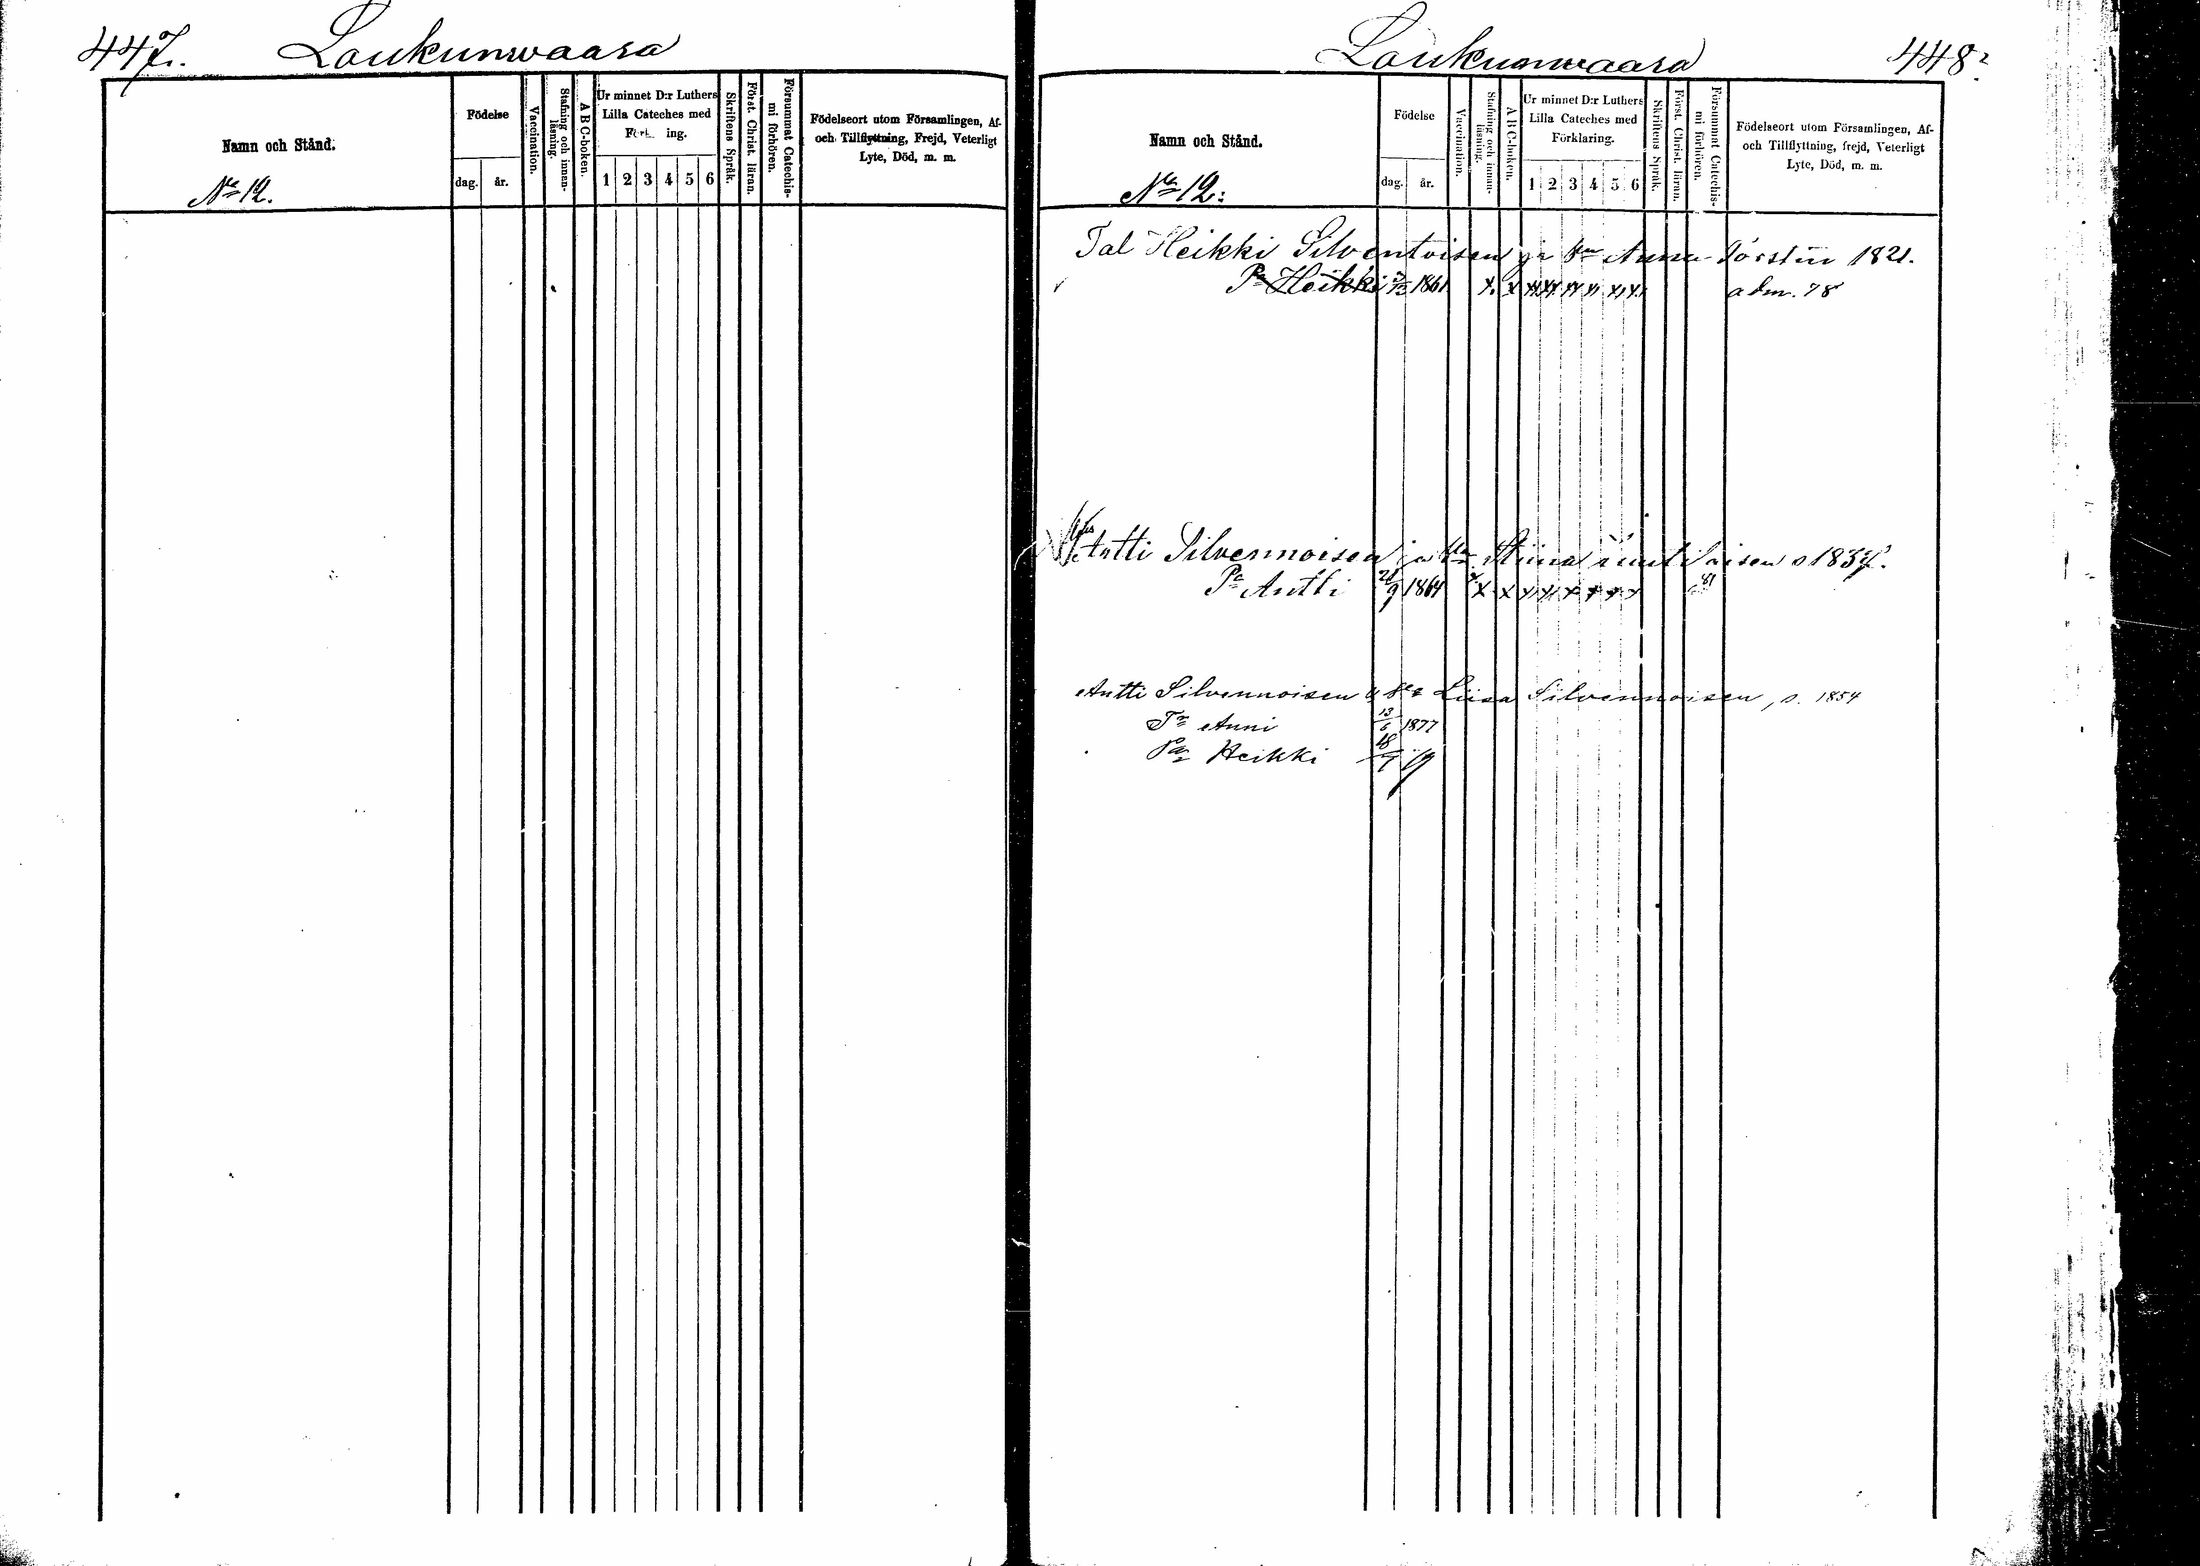 447. Loukunwaara
Namn och Stånd.
No 12.
Födelse
dag. år.
Vaccination.
Stafning och innan-läsning.
A B C-boken.
Ur minnet D:r Luthers
Lilla Cateches med
1 2 3 4 5 6
Skriftens Språk.
Först. Christ. läran.
Försummat Catechis-mi förhören.
Födelseort utom Församlingen, Af-
och Tillflyttning, Frejd, Veterligt
Lyte, Död, m. m.
Loukunwaara 448.
Namn och Stånd.
No 12.
Födelse
dag. år.
Vaccination.
Stafning och innan-läsning.
A B C-boken.
Ur minnet D:r Luthers
Lilla Cateches med
Förklaring.
1 2 3 4 5 6
Skriftens Språk.
Först. Christ. läran.
Försummat Catechis-mi förhören.
Födelseort utom Församlingen, Af-
och Tillflyttning, frejd, Veterligt
Lyte, Död, m. m.
Tal Heikki Silventoisen Anna 1821.
Pa Heikki 1861 adm. 78
Antti Silvennoisen ja Stiina s 1837.
Pa Antti 9 1864 81
Antti Silvennoisen Liisa Silvennoisen, s. 1854
Tr Anni 13/6 1877
Pa Heikki 18